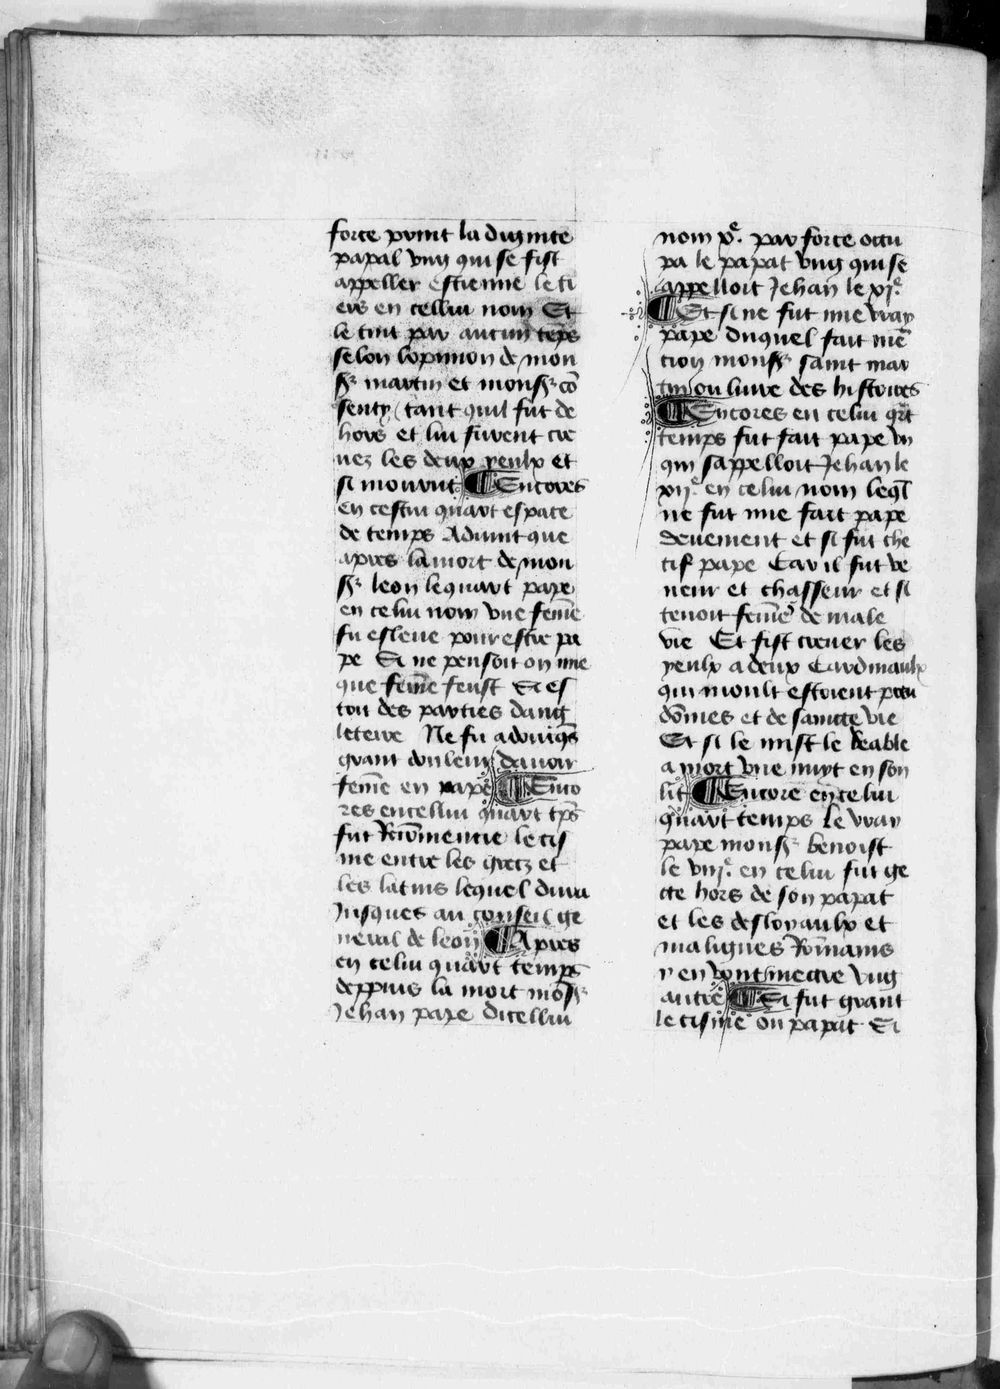 force print la dignite
papal vng qui se fist
appeller estienne le ti
ers en cellui nom Et
le tint par aucun tẽps
selon lopinion de mon
sʳ martin et monsʳ cõ
senty tant quil fut de
hors et lui furent cre
uez les deux yeulx et
si mourut ¶ Encores
en cestui quart espace
de temps Aduint que
apres la mort de mon
sʳ leon le quart pape
en celui nom vne feme
fu esleue pour estre pa
pe Et ne pensoit on mie
que feme feust Et es
toit des parties dang
leterre Ne fu adonq̃s
grant douleur dauoir
feme en pape ¶ Enco
res en cellui quart tp̃s
fut Rcõmencie le cis
me entre les grecz et
les latins lequel dura
Jusques au conseil ge
neral de leon ¶ Apres
en celui quart temps
deppuis la mort mõsʳ
Jehan pape dicellui
nom xᵉ. par force occu
pa le papat vng qui se
appelloit Jehan le xjᵉ.
¶ Et si ne fut mie vray
pape Duquel fait mẽ
cion monsʳ saint mar
tin ou liure des histoires
¶ Encores en celui qrt
temps fut fait pape vn
qui sappelloit Jehan le
xijᵉ. en celui nom leql̃
ne fut mie fait pape
deuement et si fut che
tif pape Car il fut ve
neur et chasseur et si
tenoit femes de male
vie Et fist creuer les
yeulx a deux Cardinaulx
qui moult estoient preu
dõmes et de saincte vie
Et si le mist le deable
a mort vne nuyt en son
lit ¶ Encore en celui
quart temps Le vray
pape monsʳ benoist
le viijᵉ. en celui fut ge
cte hors de son papat
et les desloyaulx et
malignes Rõmains
y en vont mectre vng
autre ¶ Si fut grant
le cisme ou papat Et